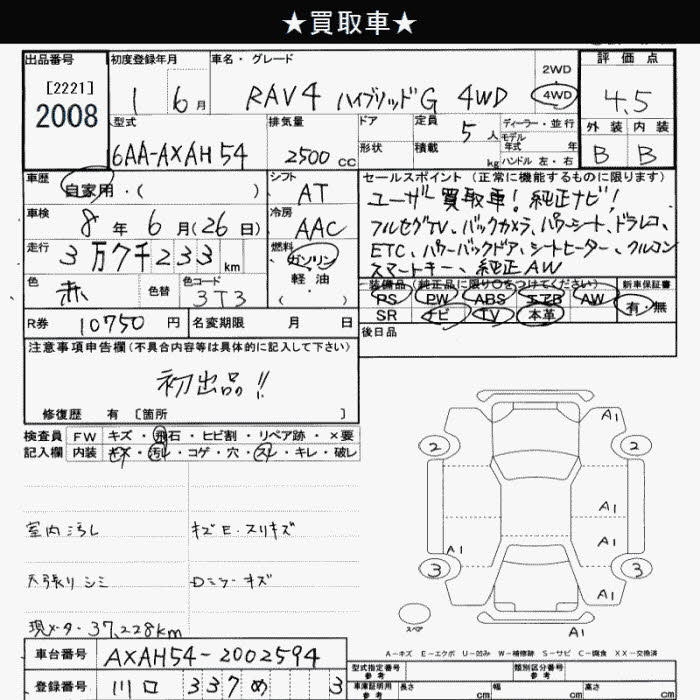 ★買取車★
出品番号
[2221]
2008
初度登録年月
1 6月
車名・グレード
RAV4 ハイブリッドG 4WD
2WD
4WD
評価点
4.5
外装 内装
B B
型式
6AA-AXAH54
排気量
2500cc
ドア
形状
定員 5人
積載 kg
ディーラー・並行
モデル年式 年
ハンドル 左・右
車歴
自家用・( )
シフト
AT
車検
8年6月(26日)
冷房
AAC
走行
3万7千233km
燃料
ガソリン
軽油
( )
色
赤
色替
色コード
3T3
セールスポイント(正常に機能するものに限ります)
ユーザー買取車!純正ナビ!
フルセグTV、バックカメラ、パワーシート、ドラレコ、
ETC、パワーバックドア、シートヒーター、クルコン
スマートキー、純正AW
装備品(純正品に限り○をつけてください)
PS PW ABS エアB AW
SR ナビ TV 本革
新車保証書
有・無
後日品
R券 10750円
名変期限 月 日
注意事項申告欄(不具合内容等は具体的に記入して下さい)
初出品!!
修復歴 有 [箇所 ]
検査員
記入欄
FW キズ・飛石・ヒビ割・リペア跡・×要
内装 キズ・汚レ・コゲ・穴・スレ・キレ・破レ
室内汚レ
キズE・スリキズ
天張りシミ
Dミラーキズ
現メーター37,228km
A1
2 2
A1
A1 A1
3 3
A1
スペア
A1
A-キズ E-エクボ U-凹み W-補修跡 S-サビ C-腐食 XX-交換済
車台番号 AXAH54-2002594
登録番号 川口 337 め 3
型式指定番号参考
類別区分番号参考
車庫証明用参考 長さ cm 幅 cm 高さ cm